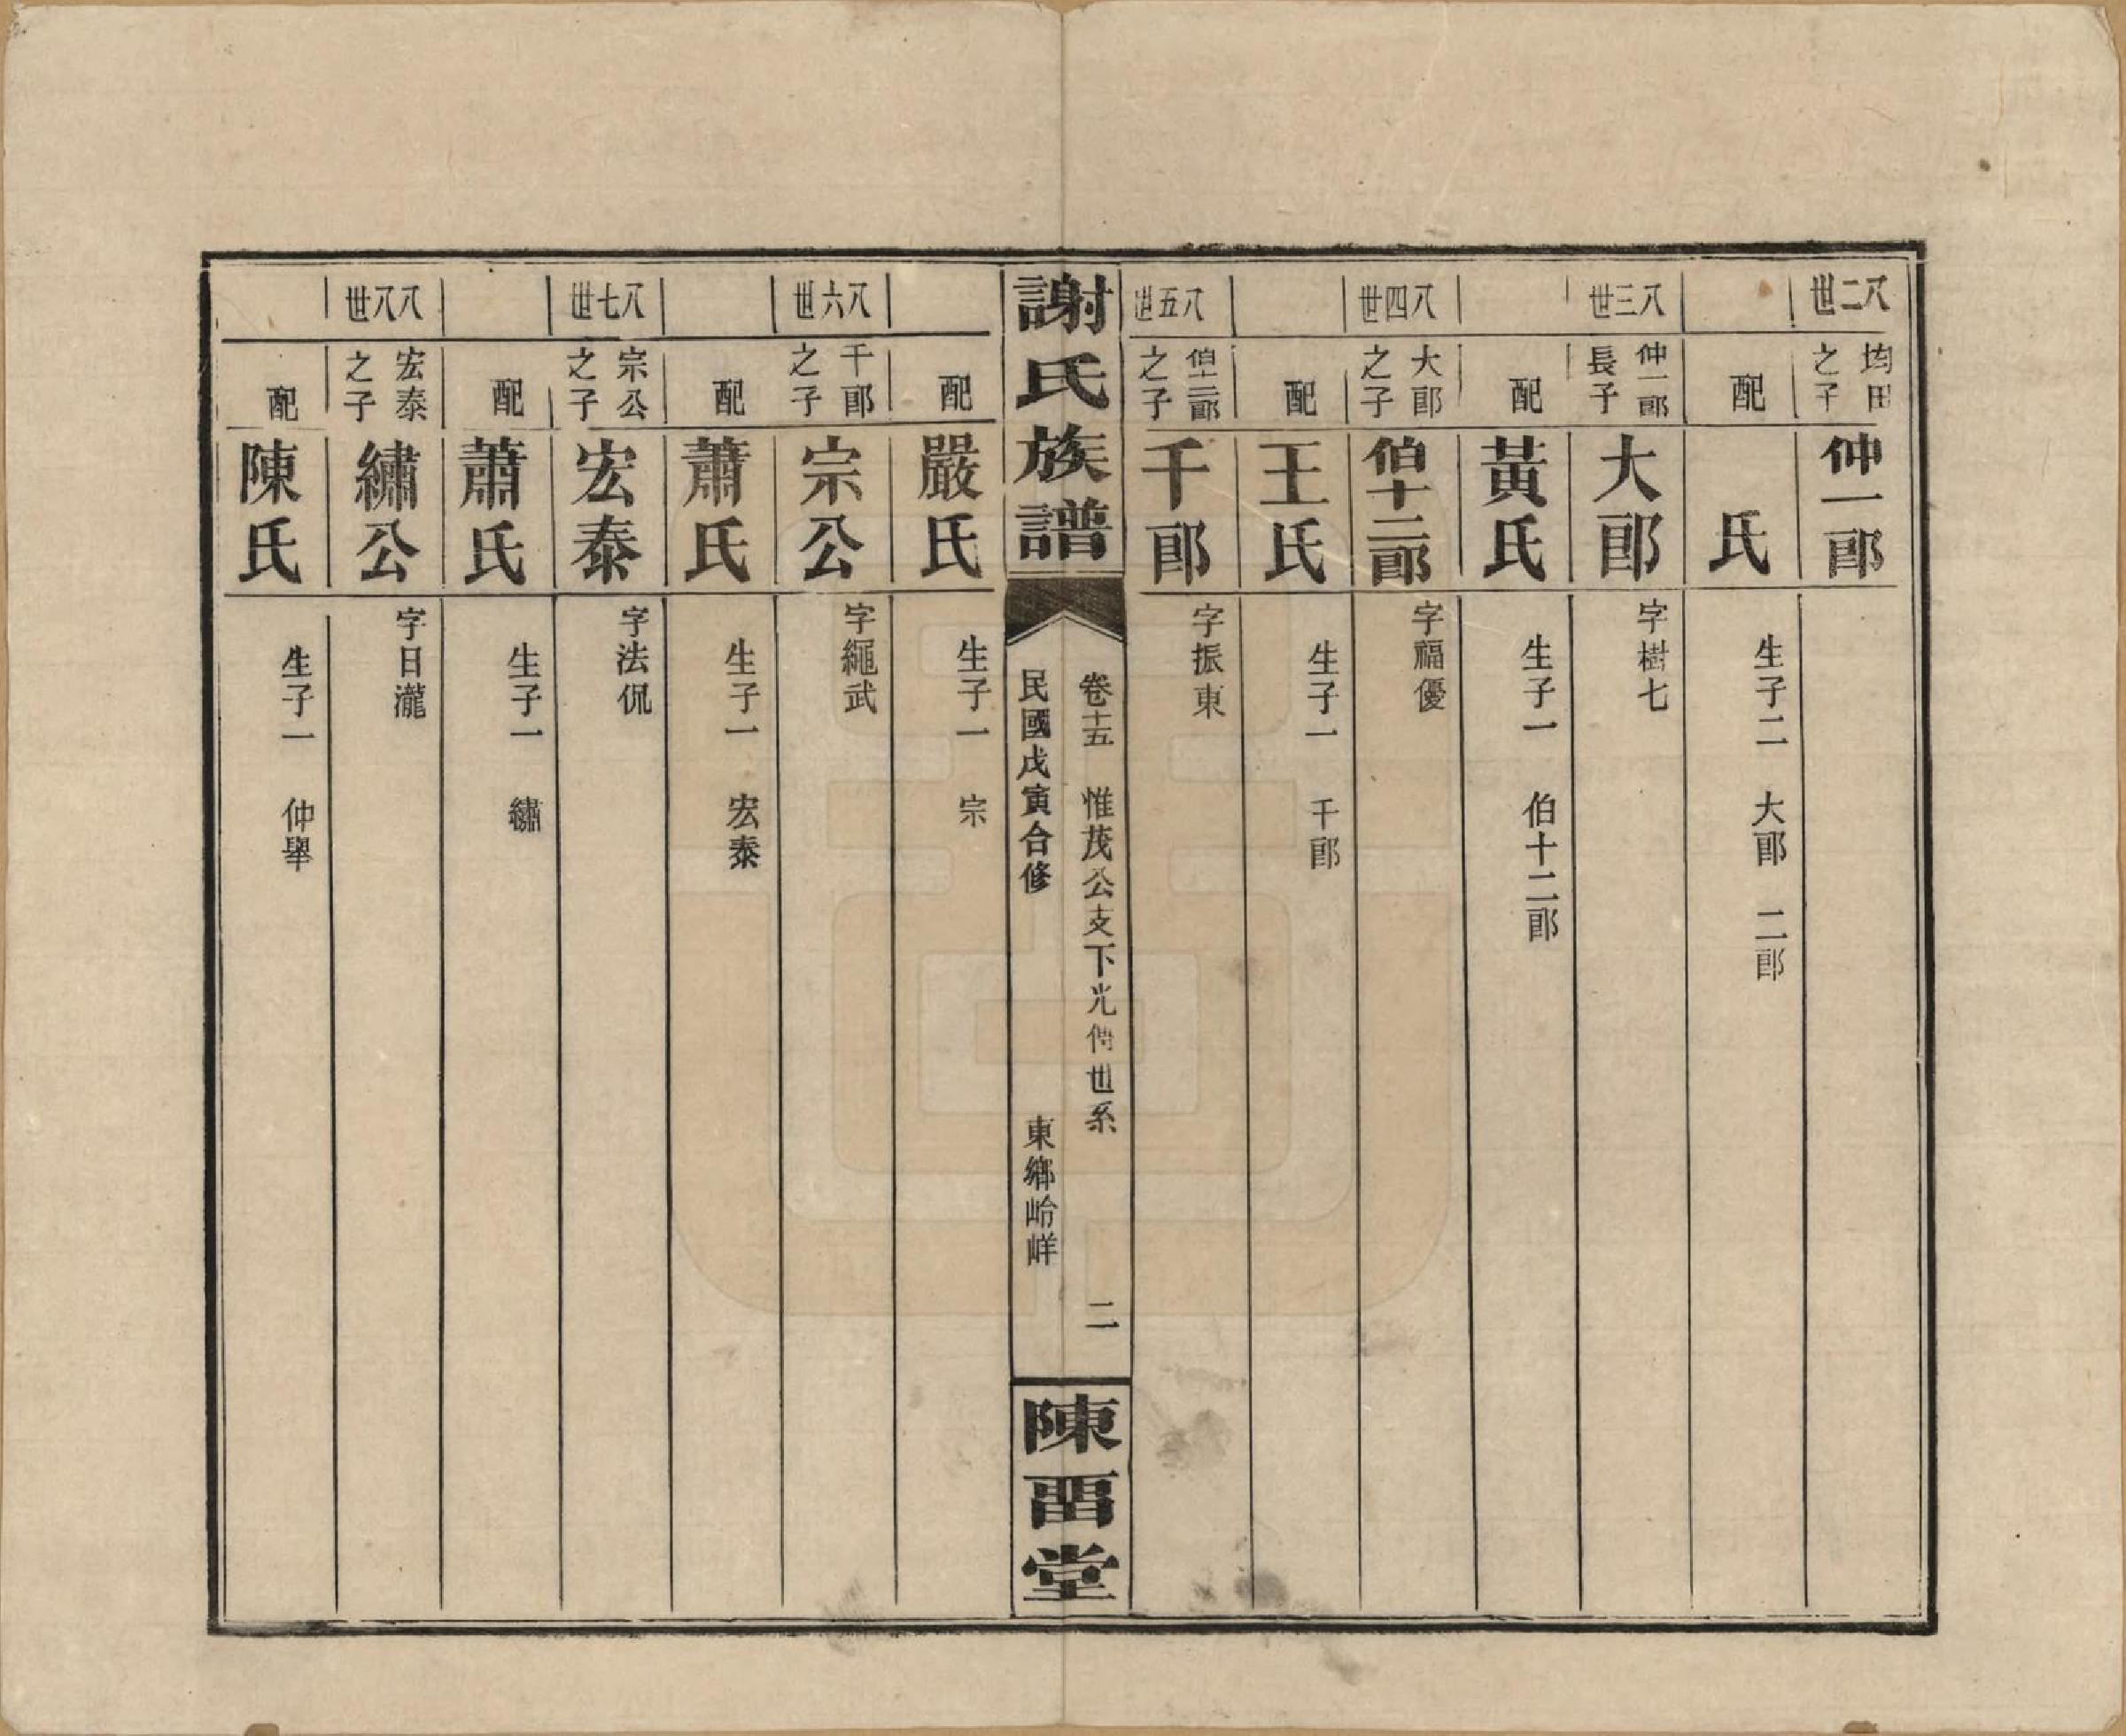 八二世 均田之子 仲一郎
配 氏 生子二 大郎 二郎
八三世 仲一郎長子 大郎 字樹七
配 黃氏 生子一 伯十二郎
八四世 大郎之子 伯十二郎 字福優
配 王氏 生子一 千郎
八五世 伯十二郎之子 千郎 字振東
謝氏族譜
卷十五 惟茂公支下光傳世系 二
民國戊寅合修 東鄉峆嵃
陳畱堂
配 嚴氏 生子一 宗
八六世 千郎之子 宗公 字繩武
配 蕭氏 生子一 宏泰
八七世 宗公之子 宏泰 字法侃
配 蕭氏 生子一 繡
八八世 宏泰之子 繡公 字日瀧
配 陳氏 生子一 仲舉